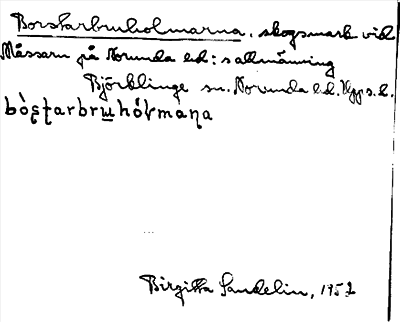 Borstarbruholmarna, skogsmark vid
Måssarn på Norunda hd:s allmänning
Björklinge sn. Norunda hd. Upps. l.
bòʂʈarbrɯhólmaɳa
Birgitta Sandelin, 1952